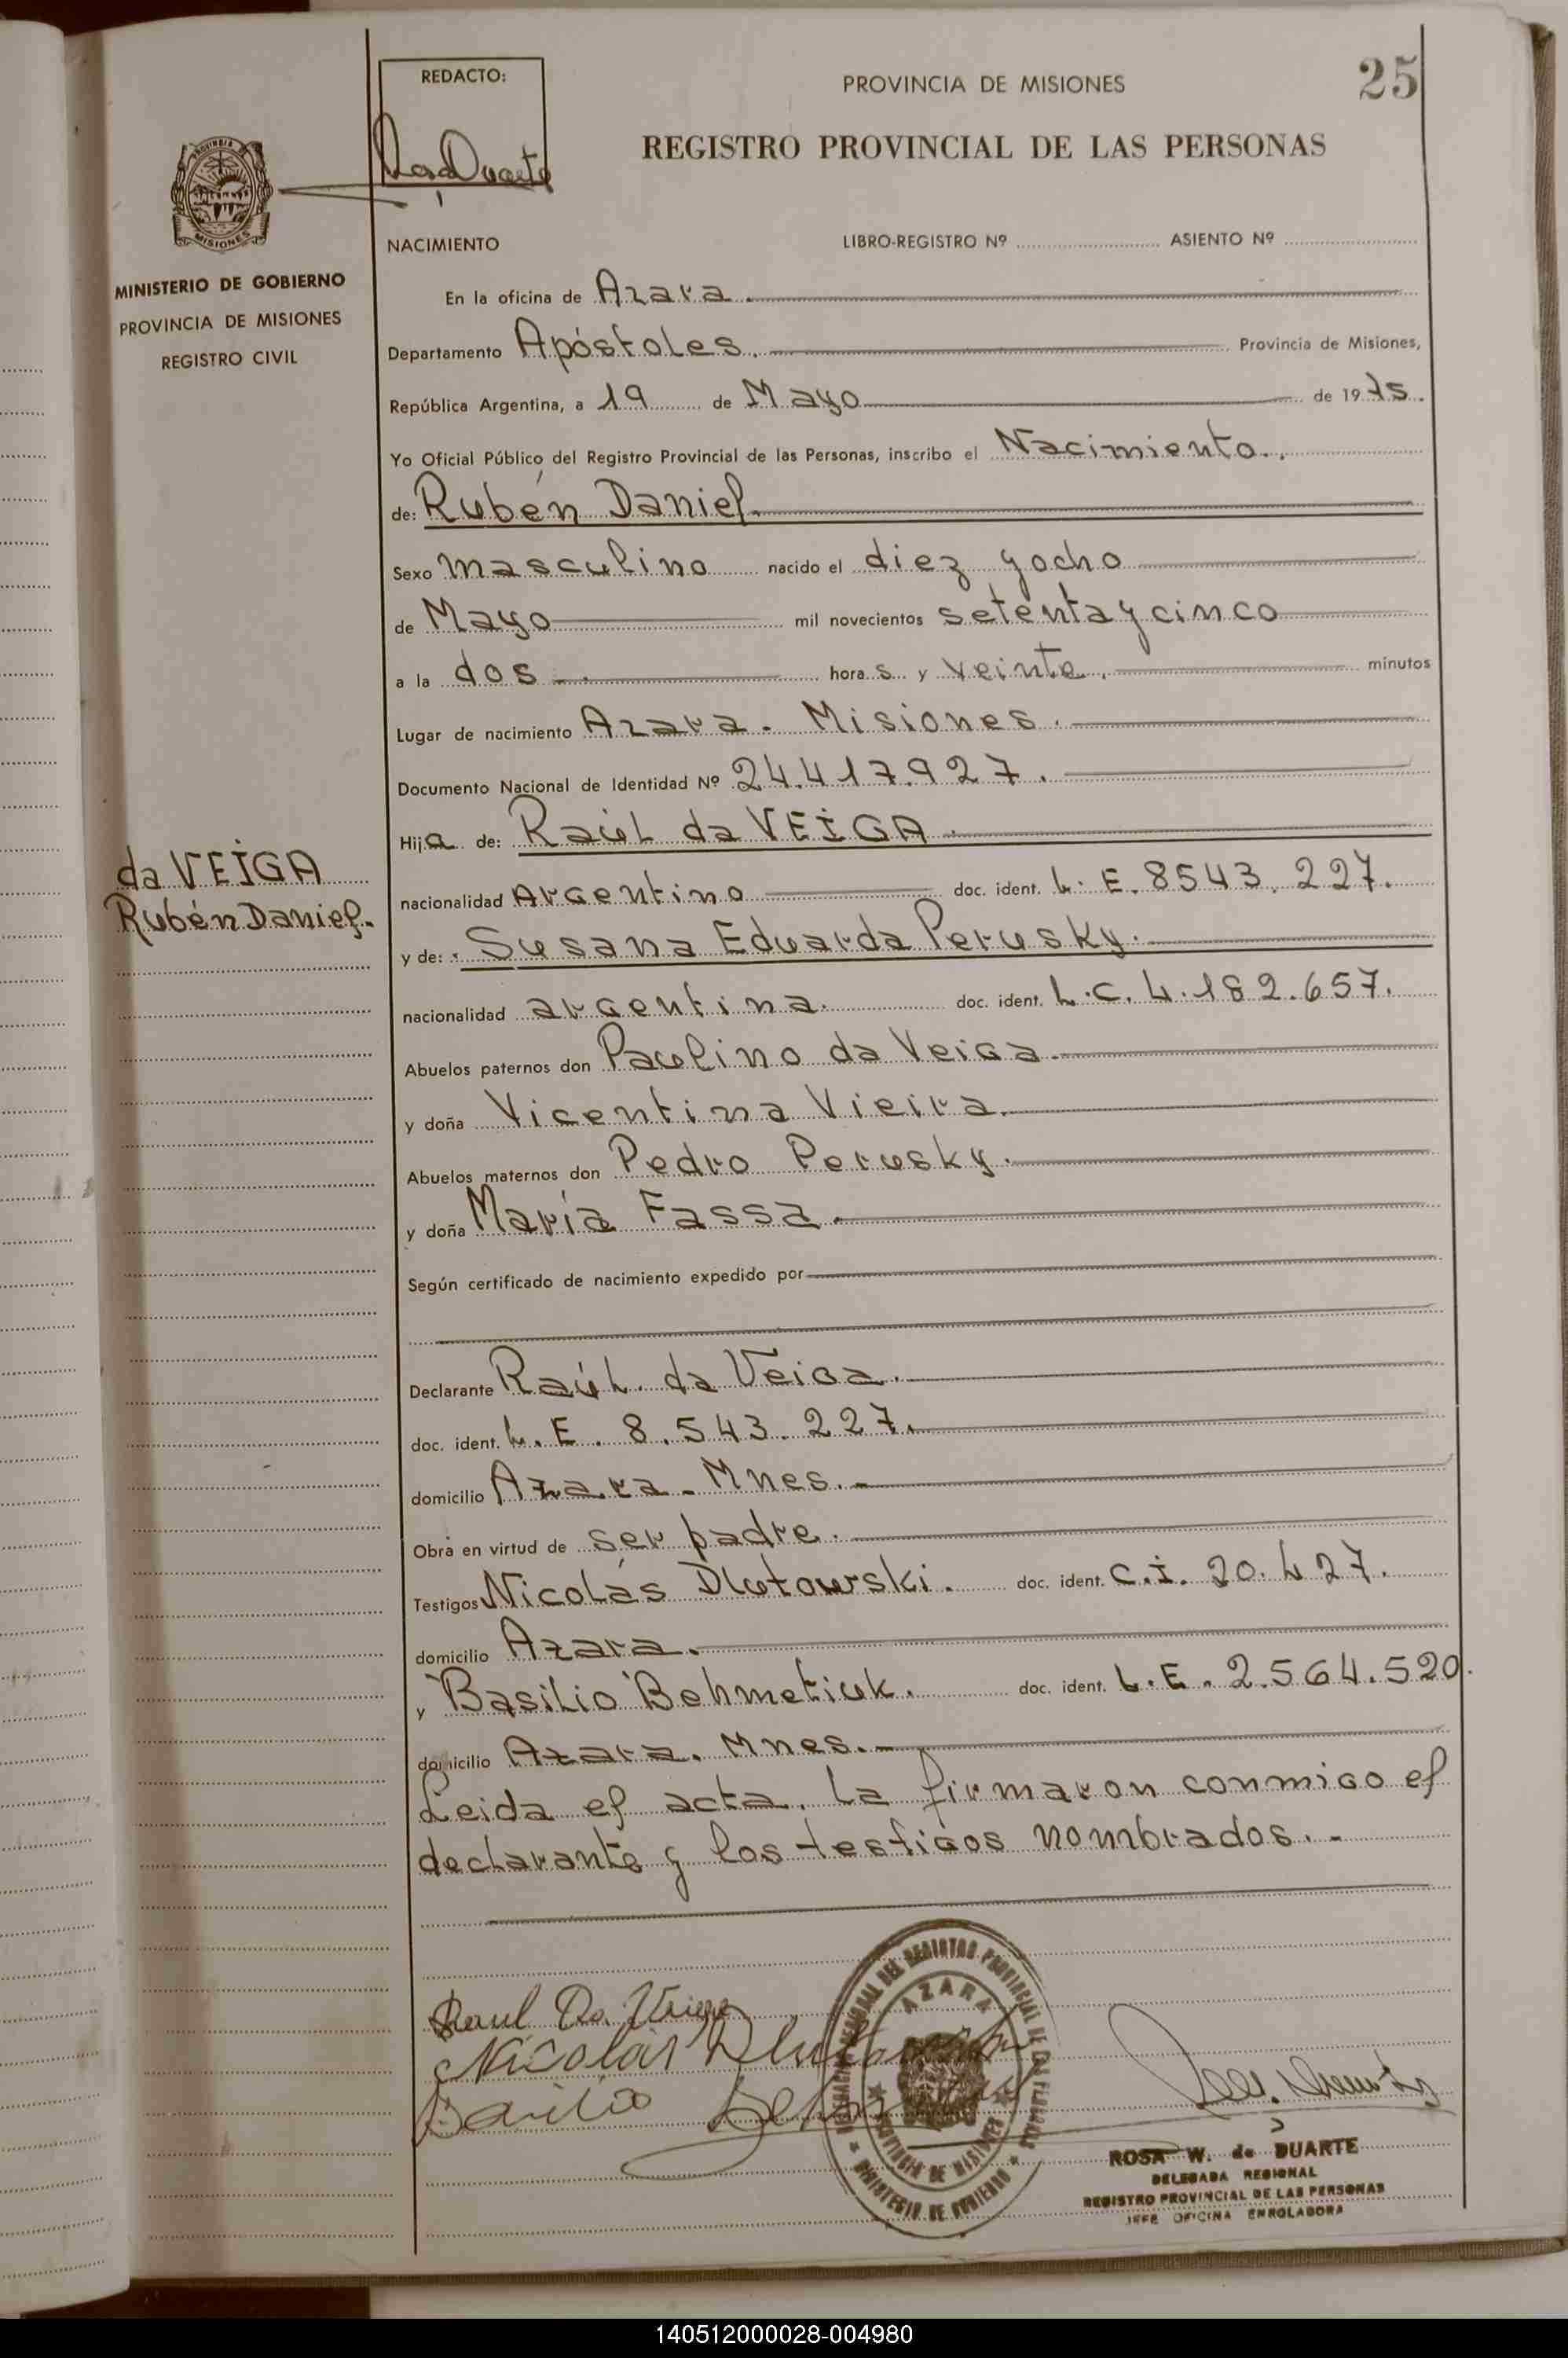 25
REDACTO:
PROVINCIA DE MISIONES
REGISTRO PROVINCIAL DE LAS PERSONAS
PROVINCIA
MISIONES
MINISTERIO DE GOBIERNO
PROVINCIA DE MISIONES
REGISTRO CIVIL
NACIMIENTO LIBRO-REGISTRO Nº ASIENTO Nº
En la oficina de Azara.
Departamento Apóstoles. Provincia de Misiones,
República Argentina, a 19 de Mayo de 1975.
Yo Oficial Público del Registro Provincial de las Personas, inscribo el Nacimiento.
de: Rubén Daniel.
Sexo masculino nacido el diez y ocho
de Mayo mil novecientos setenta y cinco
a la dos hora s y veinte. minutos
Lugar de nacimiento Azara - Misiones.
Documento Nacional de Identidad Nº 24.417.927.
Hij o de: Raúl da VEIGA.
da VEIGA
Rubén Daniel.
nacionalidad Argentino doc. ident. L. E. 8543.227.
y de: Susana Eduarda Perusky.
nacionalidad argentina. doc. ident. L.C. 4.182.657.
Abuelos paternos don Paulino da Veiga.
y doña Vicentina Vieira.
Abuelos maternos don Pedro Perusky.
y doña María Fassa.
Según certificado de nacimiento expedido por
Declarante Raúl da Veiga.
doc. ident. L. E. 8.543.227.
domicilio Azara - Mnes.
Obra en virtud de ser padre.
Testigos Nicolás Dlutowski. doc. ident. C.I. 20.427.
domicilio Azara.
y Basilio Behmetiuk. doc. ident. L.E. 2.564.520.
domicilio Azara. Mnes.
Leida el acta, la firmaron conmigo el
declarante y los testigos nombrados.-
Raul Da Veiga
Nicolás Dlutowski
Basilio
DELEGACION REGIONAL DEL REGISTRO PROVINCIAL DE LAS PERSONAS
AZARA
PROVINCIA DE MISIONES
MINISTERIO DE GOBIERNO
ROSA W. de DUARTE
DELEGADA REGIONAL
REGISTRO PROVINCIAL DE LAS PERSONAS
JEFE OFICINA ENROLADORA
140512000028-004980